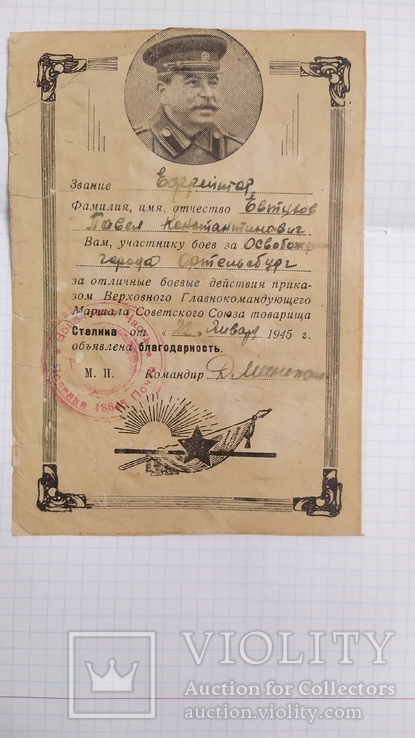 Звание Ефрейтор
Фамилия, имя, отчество Евтухов
Павел Константинович
Вам, участнику боев за
города Ортельсбург
за отличные боевые действия прика-
зом Верховного Главнокомандующего
Маршала Советского Союза товарища
Сталина от 22 Января 1945 г.
объявлена благодарность.
М. П. Командир
Полевая Поч
VIOLITY
Auction for Collectors
auction.violity.com